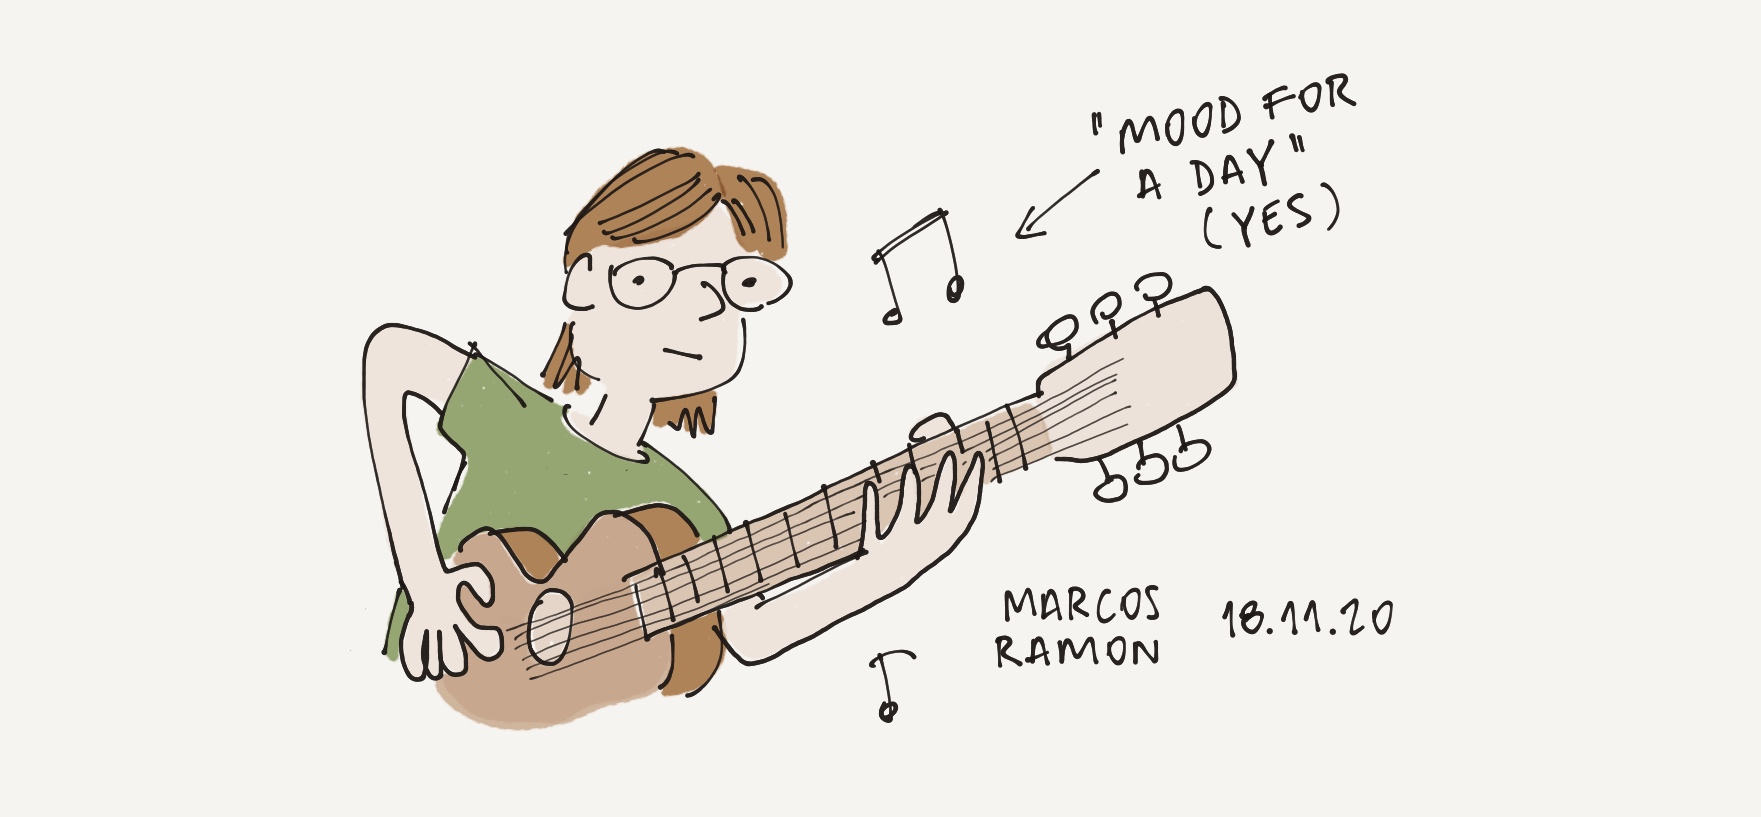 "MOOD FOR
A DAY"
(YES)
MARCOS
RAMON
18.11.20